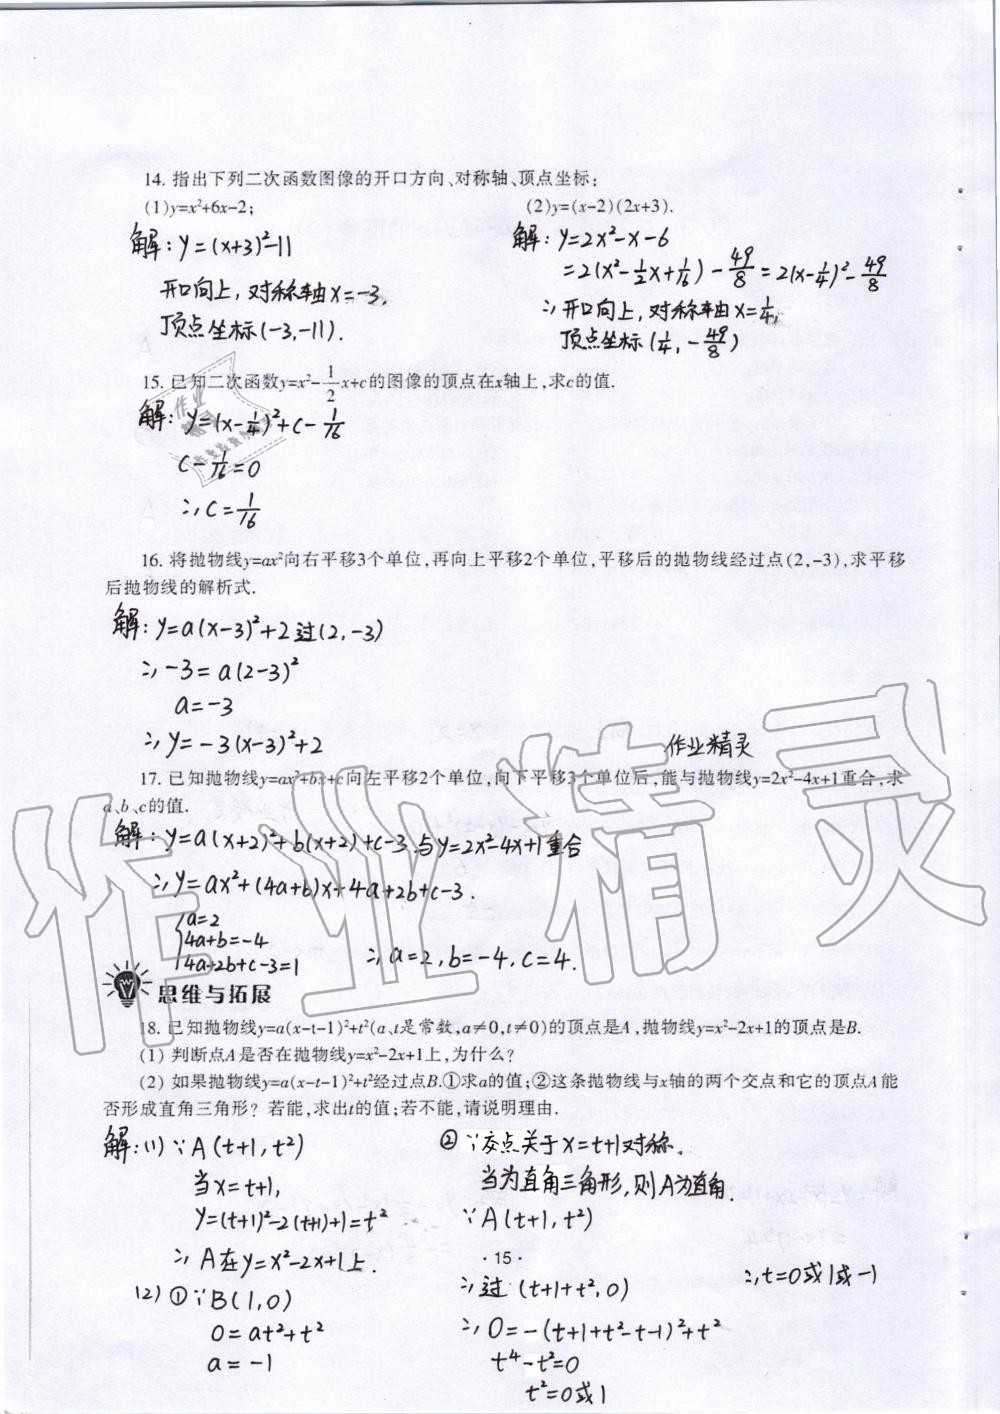 14. 指出下列二次函数图像的开口方向、对称轴、顶点坐标:
(1)y=x²+6x-2; (2)y=(x-2)(2x+3).
解: y=(x+3)²-11
开口向上, 对称轴x=-3,
顶点坐标(-3,-11).
解: y=2x²-x-6
=2(x²-1/2x+1/16)-49/8=2(x-1/4)²-49/8
∴开口向上, 对称轴由x=1/4,
顶点坐标(1/4, -49/8)
15. 已知二次函数y=x²-1/2x+c的图像的顶点在x轴上,求c的值.
解: y=(x-1/4)²+c-1/16
c-1/16=0
∴c=1/16
16. 将抛物线y=ax²向右平移3个单位,再向上平移2个单位,平移后的抛物线经过点(2,-3),求平移
后抛物线的解析式.
解: y=a(x-3)²+2过(2,-3)
∴-3=a(2-3)²
a=-3
∴y=-3(x-3)²+2
作业精灵
17. 已知抛物线y=ax²+bx+c向左平移2个单位,向下平移3个单位后,能与抛物线y=2x²-4x+1重合,求
a、b、c的值.
解: y=a(x+2)²+b(x+2)+c-3与y=2x²-4x+1重合
∴y=ax²+(4a+b)x+4a+2b+c-3.
a=2
4a+b=-4
4a+2b+c-3=1
∴a=2,b=-4,c=4.
思维与拓展
18. 已知抛物线y=a(x-t-1)²+t²(a、t是常数,a≠0,t≠0)的顶点是A,抛物线y=x²-2x+1的顶点是B.
(1) 判断点A是否在抛物线y=x²-2x+1上,为什么?
(2) 如果抛物线y=a(x-t-1)²+t²经过点B.①求a的值;②这条抛物线与x轴的两个交点和它的顶点A能
否形成直角三角形? 若能,求出t的值;若不能,请说明理由.
解:(1)∵A(t+1,t²)
当x=t+1,
y=(t+1)²-2(t+1)+1=t²
∴A在y=x²-2x+1上.
(2)①∵B(1,0)
0=at²+t²
a=-1
②∵交点关于x=t+1对称.
当为直角三角形,则A为直角.
∵A(t+1,t²)
·15·
∴过(t+1+t²,0)
∴0=-(t+1+t²-t-1)²+t²
t⁴-t²=0
t²=0或1
∴t=0或1或-1
作业精灵